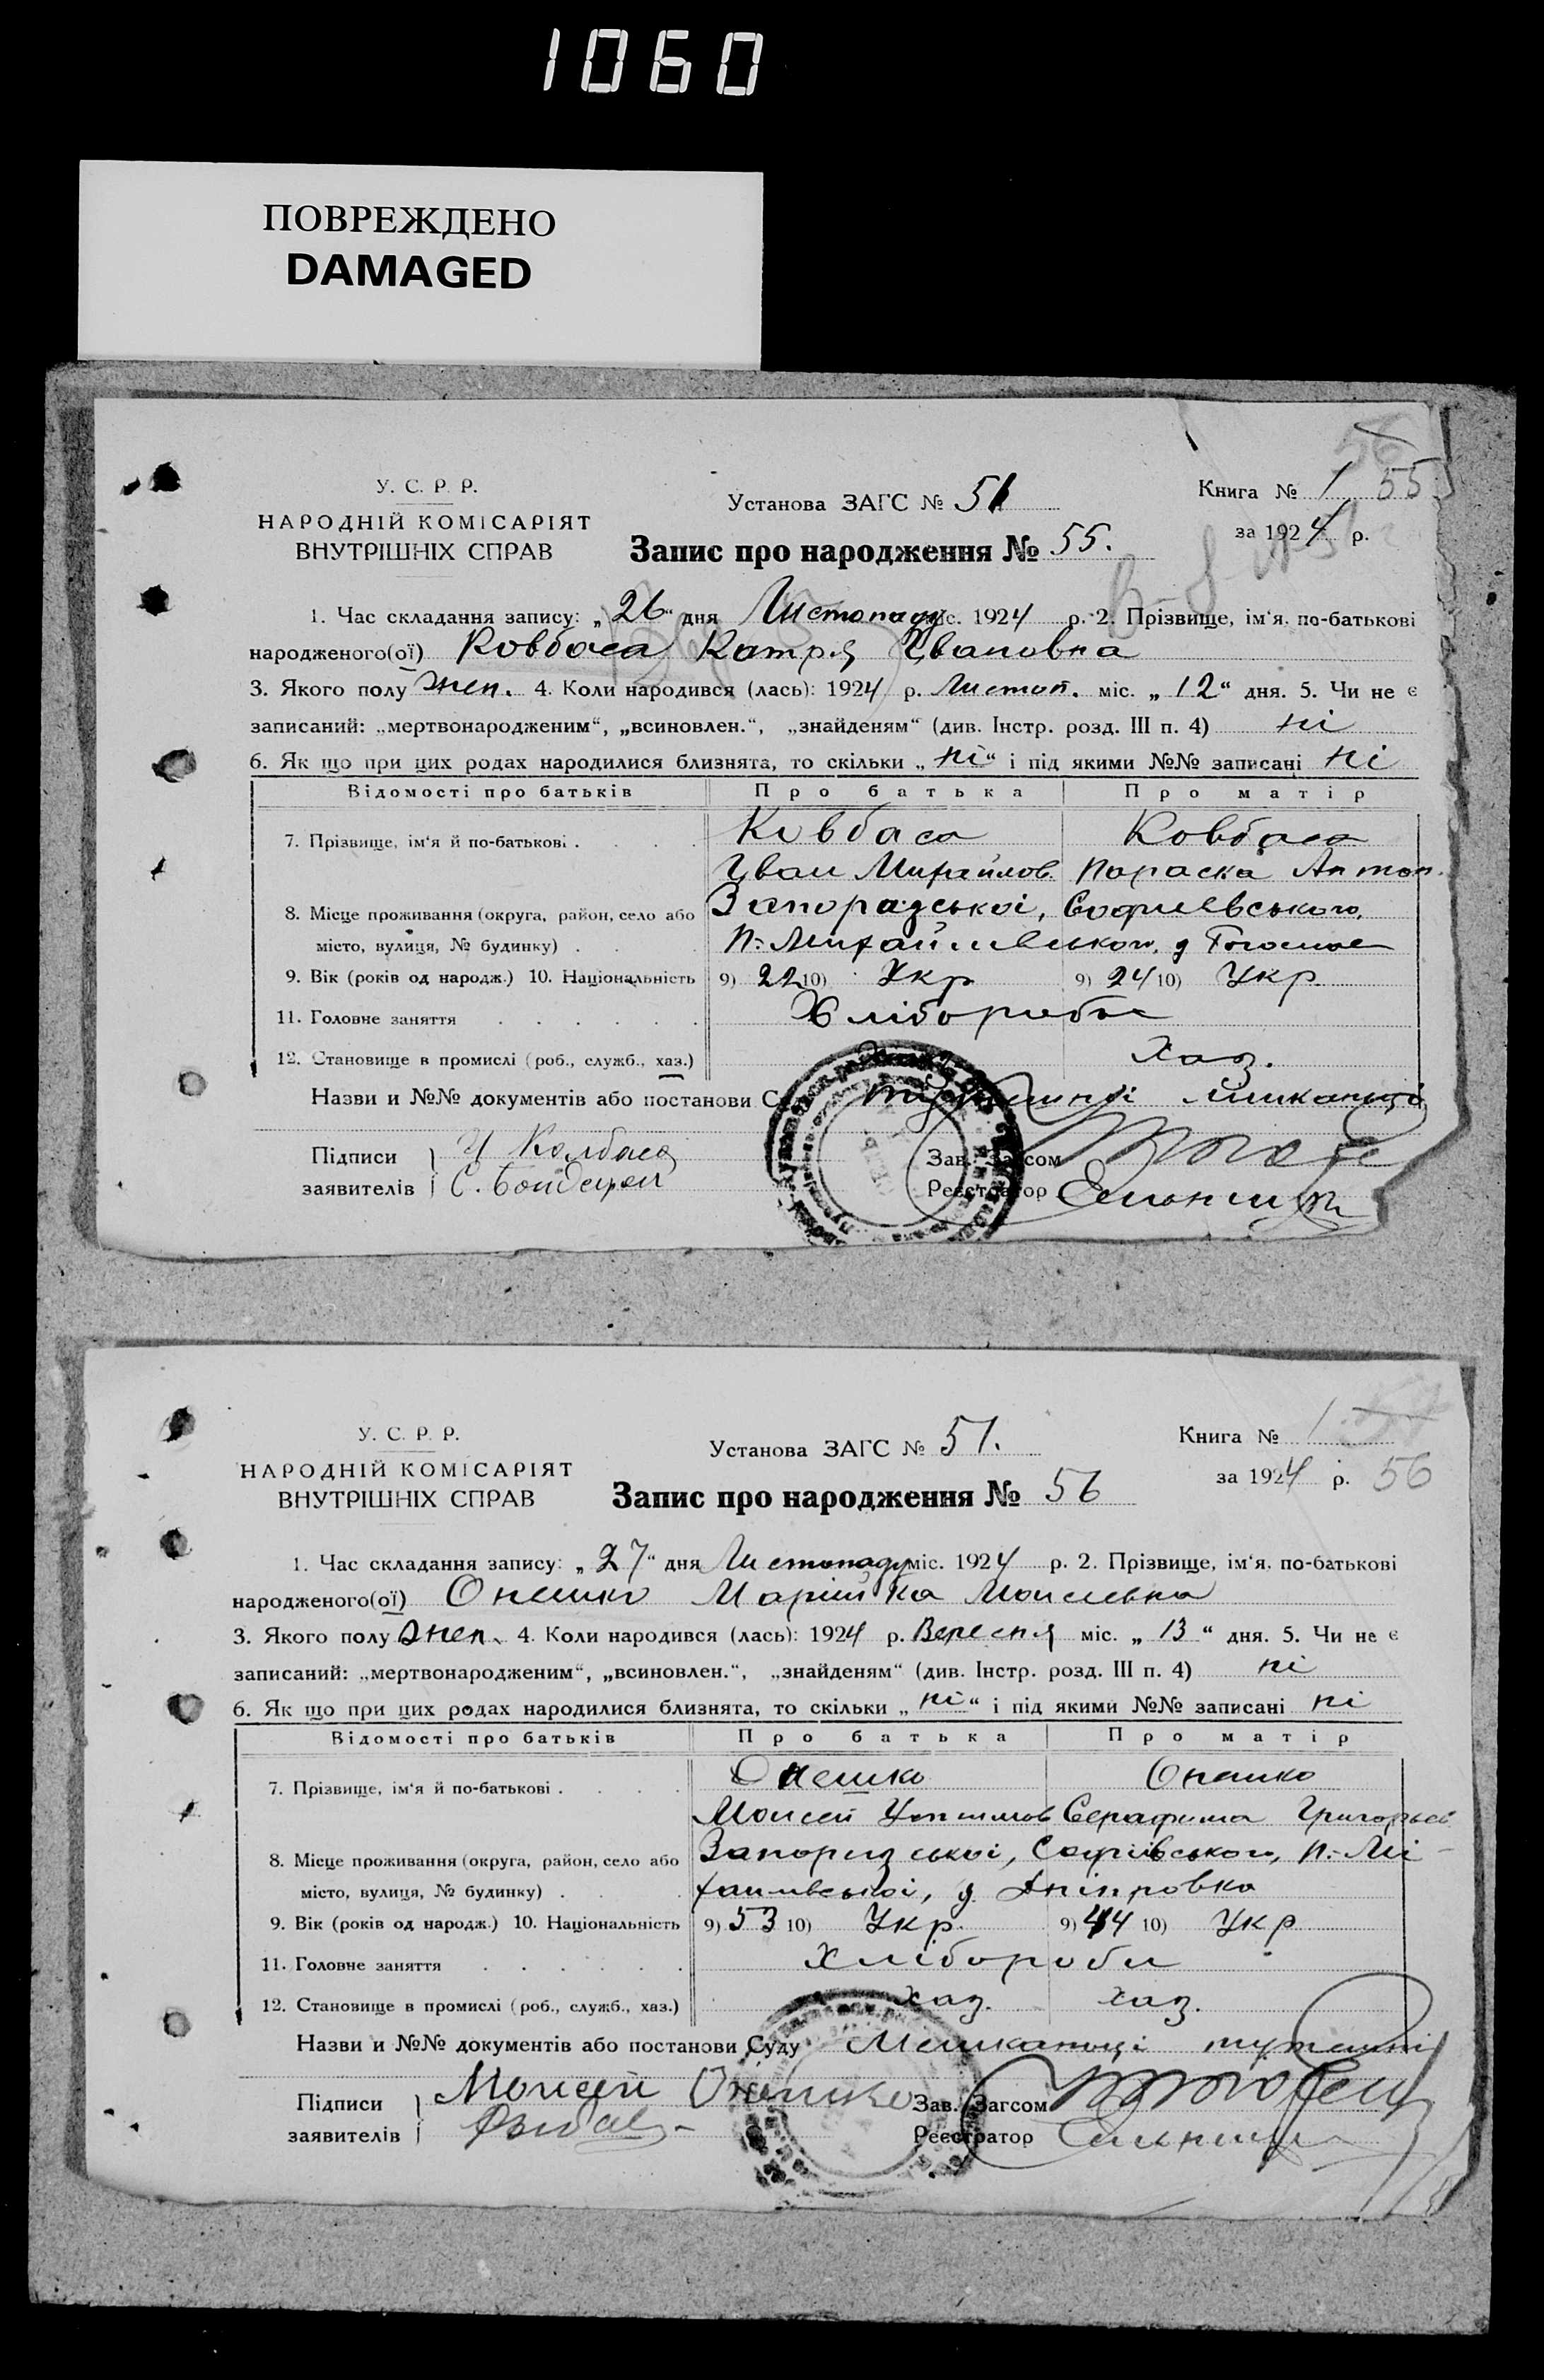 1060
ПОВРЕЖДЕНО
DAMAGED
56
У. С. Р. Р.
НАРОДНІЙ КОМІСАРІЯТ
ВНУТРІШНІХ СПРАВ
Установа ЗАГС № 51
Книга № 1 55
за 1924 р.
Запис про народження № 55.
1. Час складання запису: „26“ дня Листопаду міс. 1924 р. 2. Прізвище, ім'я, по-батькові
народженого(ої) Ковбаса Катря Ивановна
3. Якого полу жен. 4. Коли народився (лась): 1924 р. Листоп. міс. „12“ дня. 5. Чи не є
записаний: „мертвонародженим“, „всиновлен.“, „знайденям“ (див. Інстр. розд. III п. 4) ні
6. Як що при цих родах народилися близнята, то скільки „ні“ і під якими №№ записані ні
Відомості про батьків Про батька Про матір
7. Прізвище, ім'я й по-батькові . . . . Ковбаса Ковбаса
Иван Михайлов. Параска Антон.
8. Місце проживання (округа, район, село або Запоразської, Софиевського,
місто, вулиця, № будинку) . . . П.-Михайлівського, д
9. Вік (років од народж.) 10. Національність 9) 22 10) Укр 9) 24 10) Укр.
11. Головне заняття . . . . . . Хлібороби
12. Становище в промислі (роб., служб., хаз.) Хаз.
Назви и №№ документів або постанови мишканці
Підписи И Колбаса Зав. Загсом
заявителів С. Реєстратор
У. С. Р. Р.
НАРОДНІЙ КОМІСАРІЯТ
ВНУТРІШНІХ СПРАВ
Установа ЗАГС № 51.
Книга № 1
за 1924 р. 56
Запис про народження № 56
1. Час складання запису: „27“ дня Листопаду міс. 1924 р. 2. Прізвище, ім'я, по-батькові
народженого(ої) Онешко Марійка Моисеевна
3. Якого полу жен. 4. Коли народився (лась): 1924 р. Вересня міс. „13“ дня. 5. Чи не є
записаний: „мертвонародженим“, „всиновлен.“, „знайденям“ (див. Інстр. розд. III п. 4) ні
6. Як що при цих родах народилися близнята, то скільки „ні“ і під якими №№ записані ні
Відомості про батьків Про батька Про матір
7. Прізвище, ім'я й по-батькові . . . . Онешко Онешко
Моисей Серафима Григорьев
8. Місце проживання (округа, район, село або Запоризської, Софіївського, П.-Мі-
місто, вулиця, № будинку) . . . хайлівської, д Дніпровка
9. Вік (років од народж.) 10. Національність 9) 53 10) Укр. 9) 44 10) Укр
11. Головне заняття . . . . . . Хлібороби
12. Становище в промислі (роб., служб., хаз.) хаз. хаз.
Назви и №№ документів або постанови Суду Мешканці тутешні
Підписи Моисей Онешко Зав. Загсом
заявителів Реєстратор